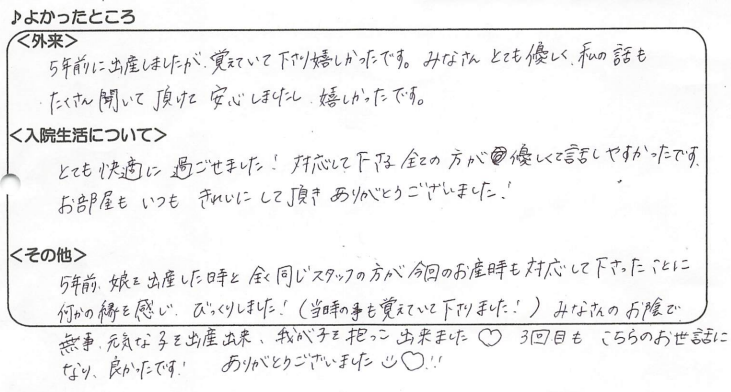 ♪よかったところ
<外来>
5年前に出産しましたが、覚えていて下さり嬉しかったです。みなさん とても優しく、私の話も
たくさん聞いて頂けて 安心しましたし、嬉しかったです。
<入院生活について>
とても快適に過ごせました! 対応して下さる全ての方が優しくて話しやすかったです。
お部屋も いつも きれいにして頂き ありがとうございました!
<その他>
5年前、娘を出産した時と全く同じスタッフの方が今回のお産時も対応して下さったことに
何かの縁を感じ、びっくりしました!(当時の事も覚えていて下さりました!) みなさんのお陰で
無事、元気な子を出産出来、我が子を抱っこ出来ました♡ 3回目も こちらのお世話に
なり、良かったです! ありがとうございました♡!!